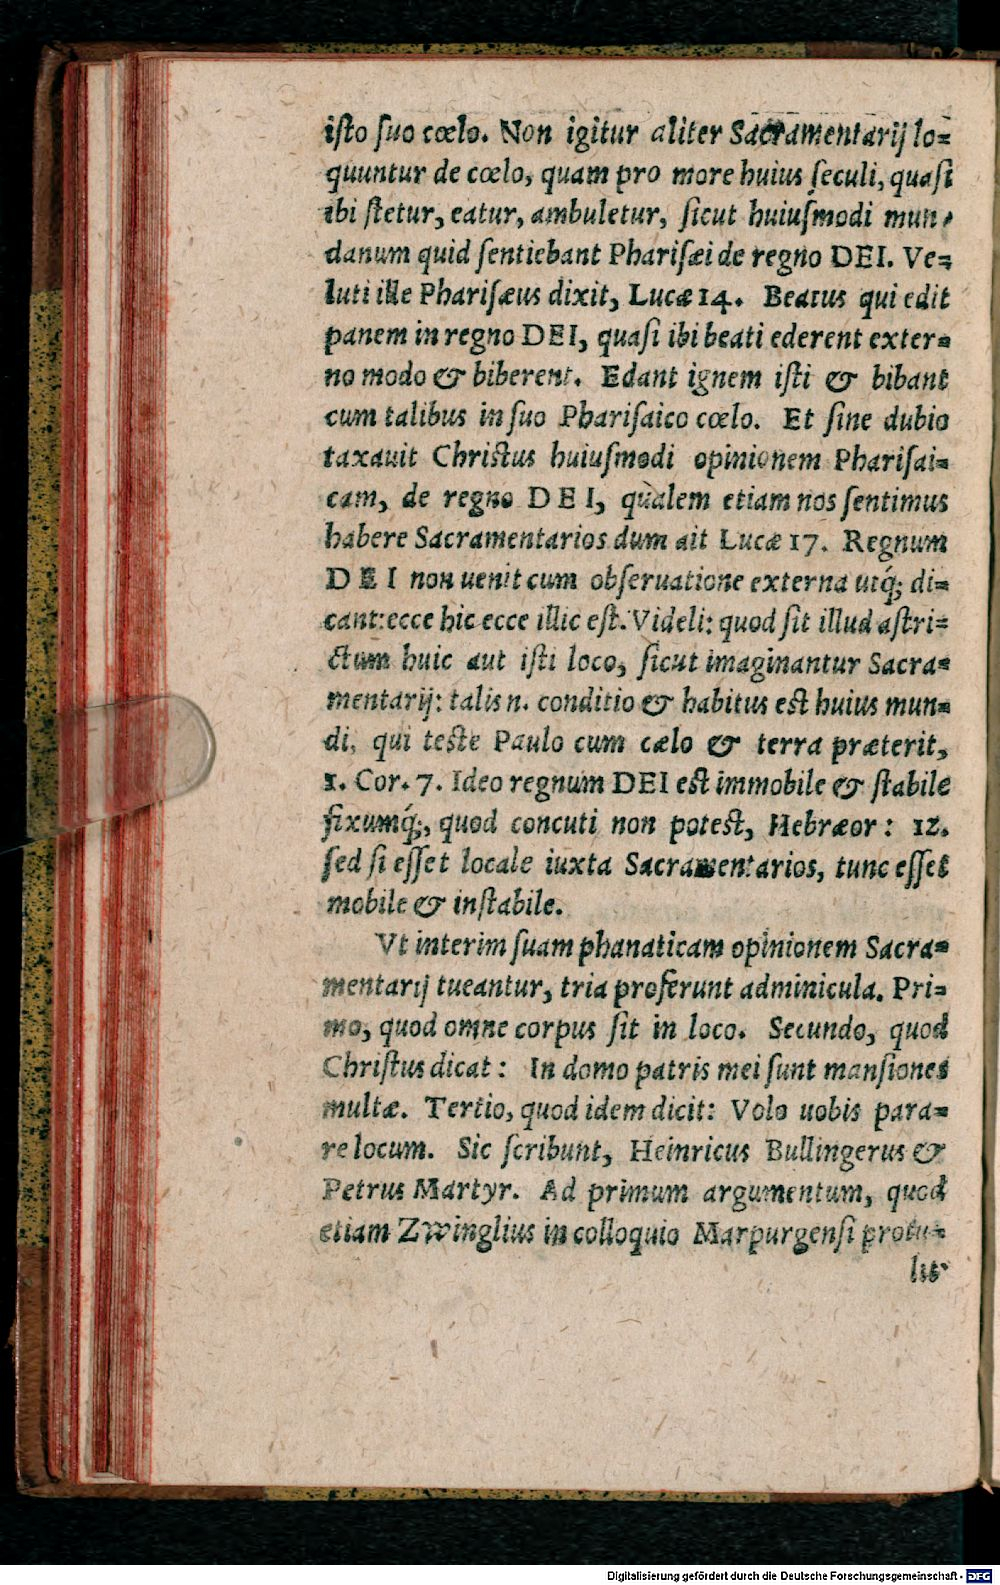 isto suo cœlo. Non igitur aliter Sacramentarij lo=
quuntur de cœlo, quam pro more huius seculi, quasi
ibi stetur, eatur, ambuletur, sicut huiusmodi mun=
danum quid sentiebant Pharisæi de regno DEI. Ve=
luti ille Pharisæus dixit, Lucæ 14. Beatus qui edit
panem in regno DEI, quasi ibi beati ederent exter=
no modo & biberent. Edant ignem isti & bibant
cum talibus in suo Pharisaico cœlo. Et sine dubio
taxauit Christus huiusmodi opinionem Pharisai=
cam, de regno DEI, qualem etiam nos sentimus
habere Sacramentarios dum ait Lucæ 17. Regnum
DEI non uenit cum obseruatione externa utq́; di=
cant: ecce hic ecce illic est. Videli: quod sit illud astri=
ctum huic aut isti loco, sicut imaginantur Sacra=
mentarij: talis n. conditio & habitus est huius mun=
di, qui teste Paulo cum cælo & terra præterit,
1. Cor. 7. Ideo regnum DEI est immobile & stabile
fixumq́;, quod concuti non potest, Hebræor: 12.
sed si esset locale iuxta Sacramentarios, tunc esset
mobile & instabile.
Vt interim suam phanaticam opinionem Sacra=
mentarij tueantur, tria proferunt adminicula. Pri=
mo, quod omne corpus sit in loco. Secundo, quod
Christus dicat: In domo patris mei sunt mansiones
multæ. Tertio, quod idem dicit: Volo uobis para=
re locum. Sic scribunt, Heinricus Bullingerus &
Petrus Martyr. Ad primum argumentum, quod
etiam Zwinglius in colloquio Marpurgensi protu=
lit
Digitalisierung gefördert durch die Deutsche Forschungsgemeinschaft - DFG